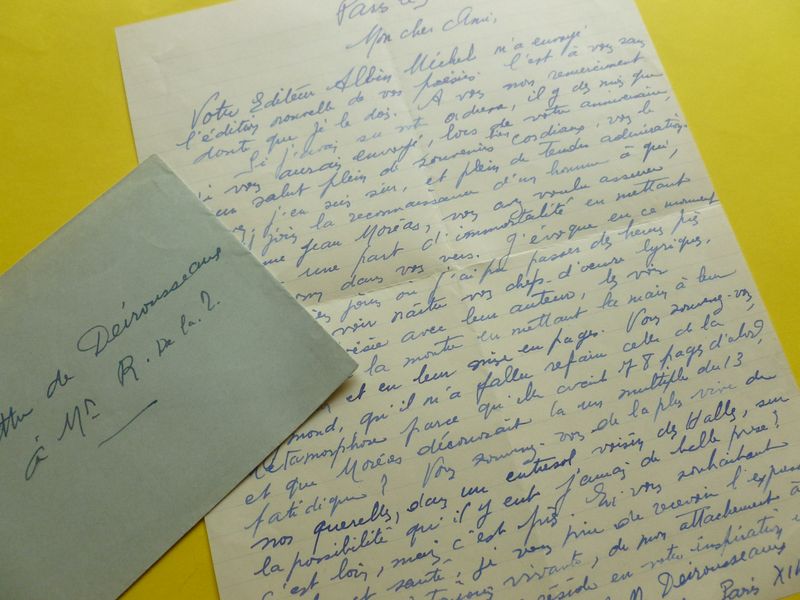 Paris
Mon cher Ami,
Votre Editeur Albin Michel m'a envoyé
l'édition nouvelle de vos poésies. C'est à vous sans
doute que je le dois. A vous mon remerciement
Si j'avais su votre adresse, il y a des mois que
vous aurais envoyé, lors de votre anniversaire,
un salut plein de souvenirs très cordiaux, vous le
j'en suis sûr, et plein de tendre admiration.
joins la reconnaissance d'un homme à qui,
Jean Moréas, vous avez voulu assurer
une part d'immortalité en mettant
dans vos vers. J'évoque en ce moment
jours où j'ai pu passer des heures près
voir naître vos chefs-d'oeuvre lyriques,
avec leur auteur, les voir
la montre en mettant la main à leur
et en leur mise en pages. Vous souvenez-vous
qu'il m'a fallu refaire celle de la
Métamorphose parce qu'elle avait 78 pages d'abord,
et que Moréas découvrait là un multiple du 13
fatidique ? Vous souvenez-vous de la plus vive de
nos querelles, dans un entresol voisin des Halles, sur
la possibilité qu'il y eut jamais de belle prose ?
C'est loin, mais c'est près. En vous souhaitant
santé, je vous prie de recevoir l'expression
toujours vivante, de mon attachement à
réside en votre inspiration
Deirousseaux
Paris XIV
de Deirousseaux
à Mr R. De la. 2.